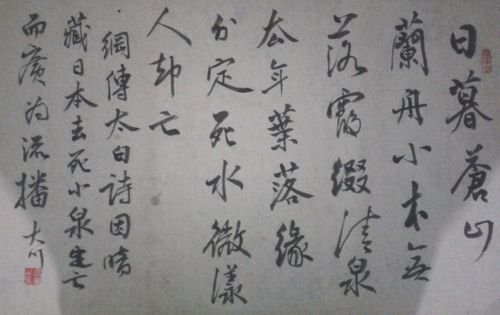 日暮蒼山
蘭舟小本無
落霞綴清泉
去年葉落緣
分定死水微漾
人却亡
網傳太白詩因暗
藏日本去死小泉定亡
而廣為流播 大川